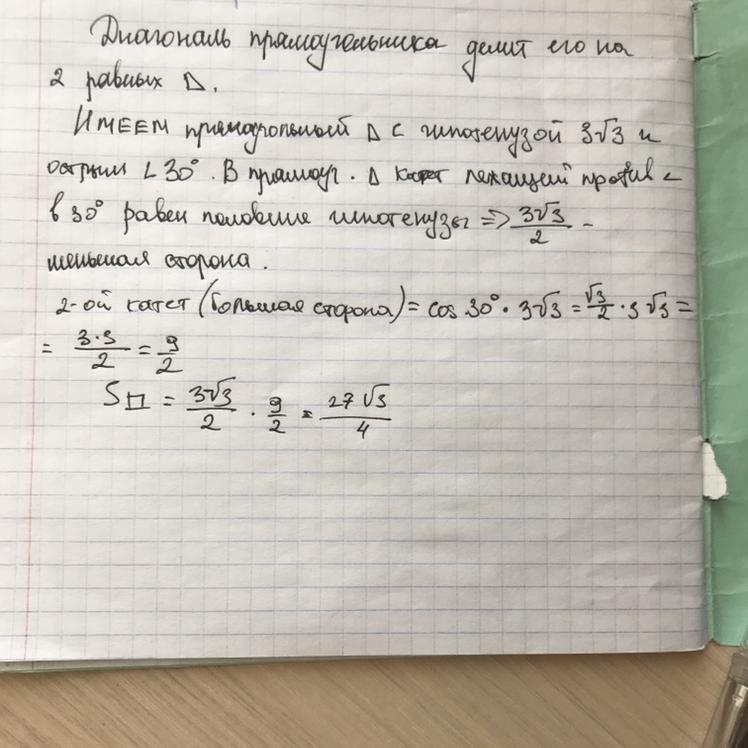 Диагональ прямоугольника делит его на
2 равных Δ.
ИМЕЕМ прямоугольный Δ с гипотенузой 3√3 и
острым ∠30°. В прямоуг. Δ катет лежащий против ∠
в 30° равен половине гипотенузы ⇒ 3√3/2 -
меньшая сторона.
2-ой катет (большая сторона) = cos 30° · 3√3 = √3/2 · 3√3 =
= 3·3/2 = 9/2
S□ = 3√3/2 · 9/2 = 27√3/4